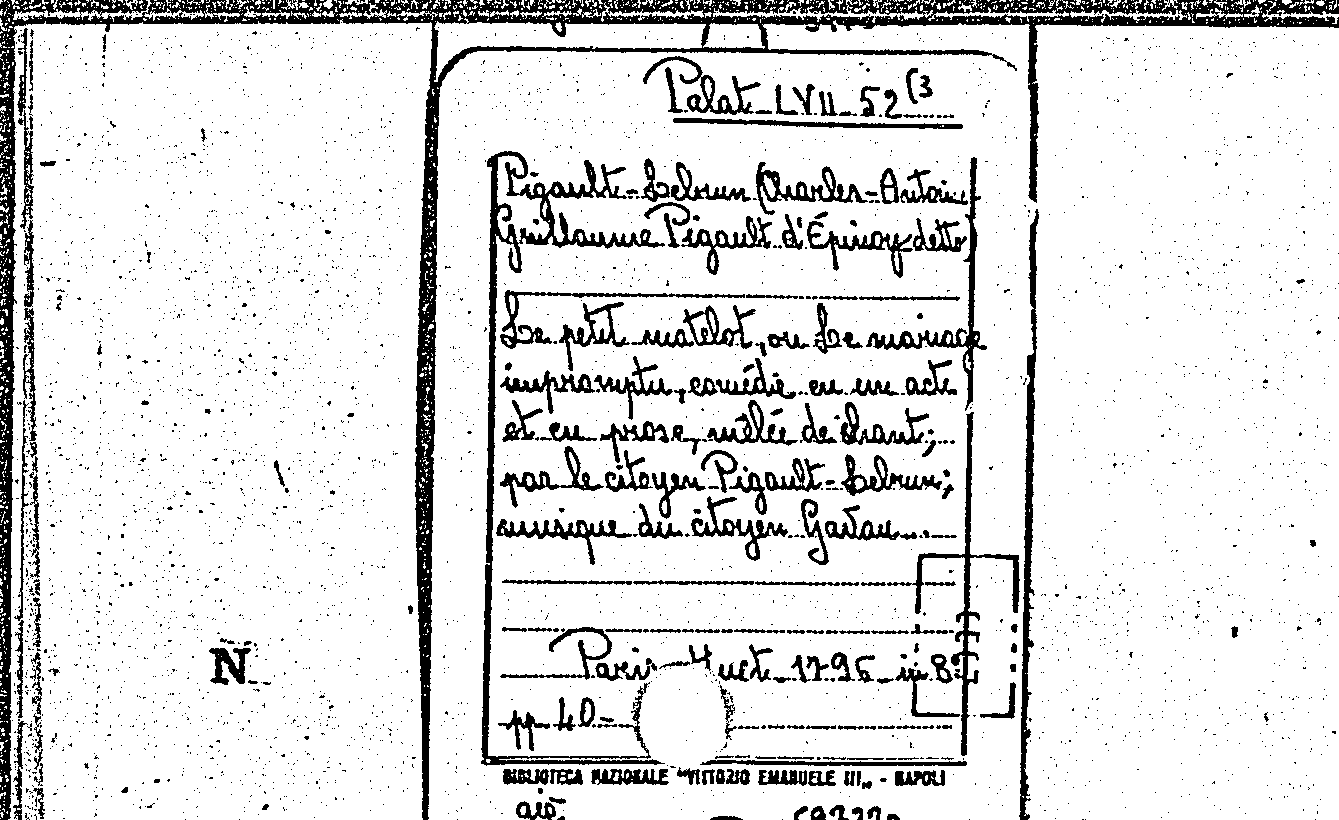 Palat. LVII 52(3
Pigault-Lebrun (Charles-Antoine
Guillaume Pigault d'Épinoy detto)
Le petit matelot, ou Le mariage
impromptu, comédie en un acte
et en prose, mêlée de chant;
par le citoyen Pigault-Lebrun;
musique du citoyen Gavau...
Paris Huet 1796 in 8°
N
pp 40-
BIBLIOTECA NAZIONALE "VITTORIO EMANUELE III„ - NAPOLI